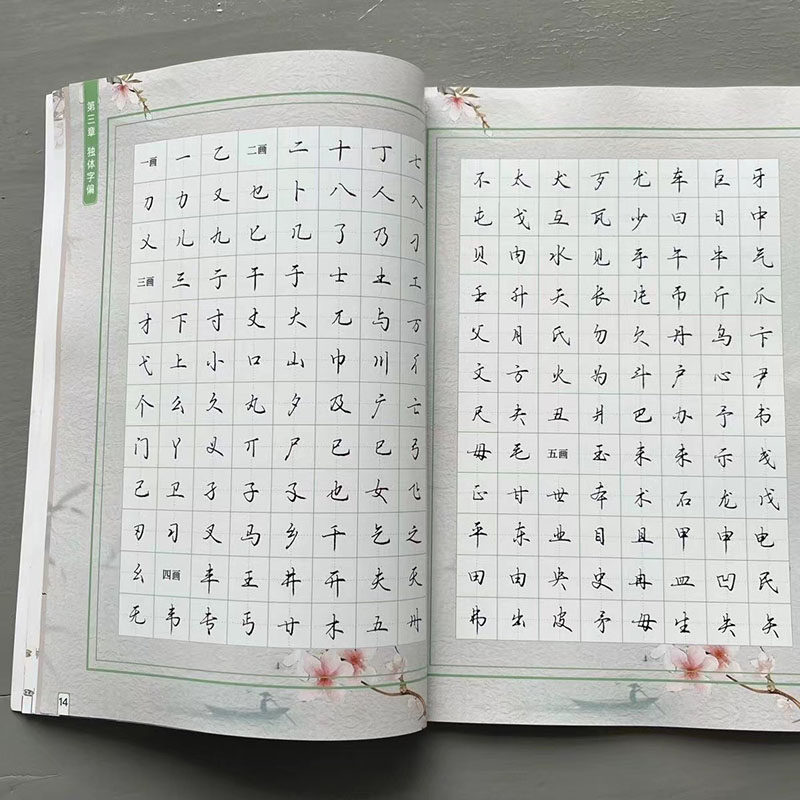 第三章 独体字偏
一画 一 乙 二画 二 十 丁 七
刀 力 又 乜 卜 八 人 入
乂 儿 九 匕 几 了 乃 刁
三画 三 亍 干 于 士 土 工
才 下 寸 丈 大 兀 与 万
弋 上 小 口 山 巾 川 彳
个 么 久 丸 夕 及 广 亡
门 丫 义 丌 尸 已 巳 弓
己 卫 孑 子 孓 也 女 飞
刃 习 叉 马 乡 千 乞 之
幺 四画 丰 王 井 开 夫 天
无 韦 专 丐 廿 木 五 卅
14
不 太 犬 歹 尤 车 巨 牙
屯 戈 互 瓦 少 曰 日 中
贝 内 水 见 手 午 牛 气
壬 升 夭 长 币 斤 爪
父 月 氏 勿 欠 丹 乌 卞
文 方 火 为 斗 户 心 尹
尺 夬 丑 爿 巴 办 予 书
毋 毛 五画 玉 未 末 示 戋
正 甘 世 本 术 石 龙 戊
平 东 业 目 且 甲 申 电
田 由 央 史 冉 皿 凹 民
弗 出 皮 矛 母 生 失 矢